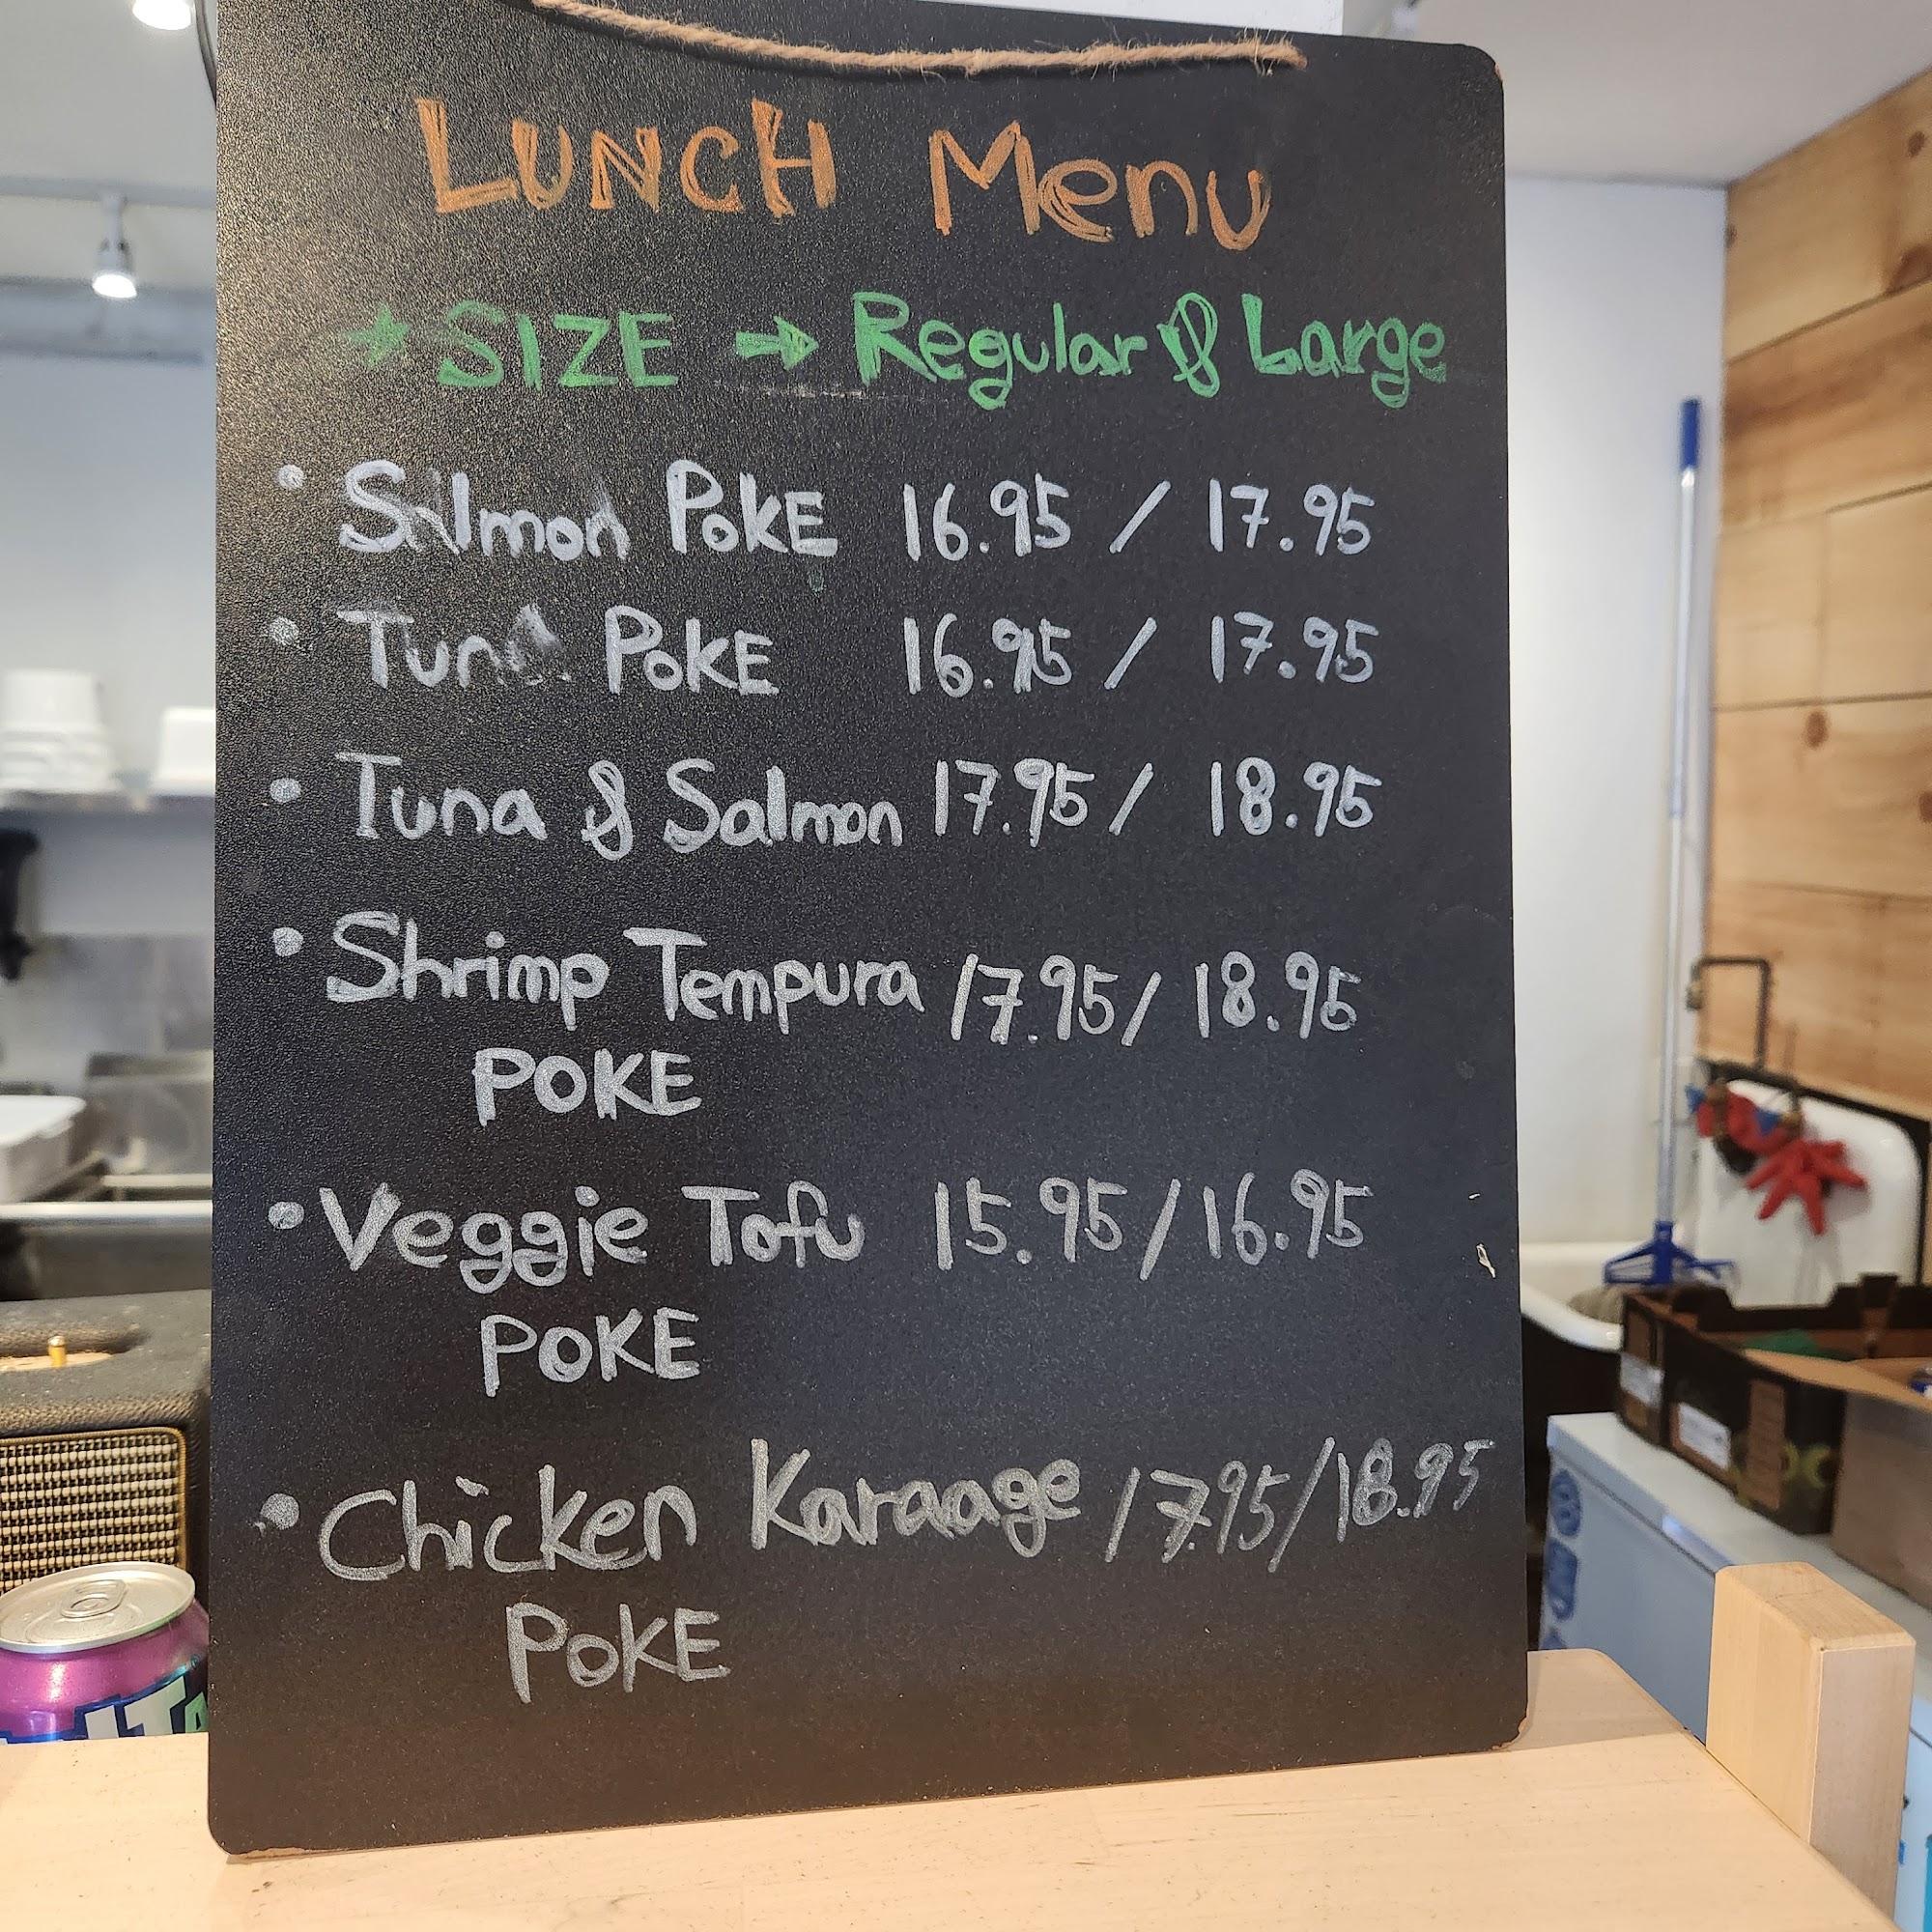 LUNCH Menu
★ SIZE → Regular & Large
• Salmon POKE 16.95 / 17.95
• Tuna POKE 16.95 / 17.95
• Tuna & Salmon 17.95 / 18.95
• Shrimp Tempura 17.95 / 18.95
POKE
• Veggie Tofu 15.95 / 16.95
POKE
• Chicken Karaage 17.95 / 18.95
POKE